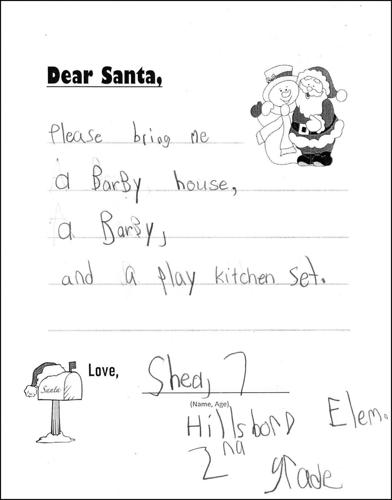 Dear Santa,
Please bring me
a BarBy house,
a BarBy,
and a play kitchen set.
Santa
Love,
Shea, 7
(Name, Age)
Hillsboro Elem.
2nd grade